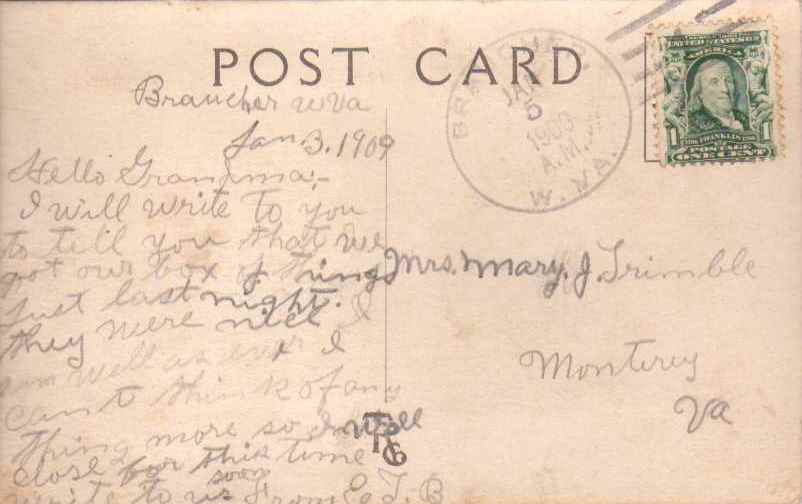 POST CARD
Braucher W Va
Jan. 3. 1909
Hello Grandma,-
I will write to you
to tell you that we
got our box of things
just last night.
they were nice I
am well as ever I
can't think of any
thing more so I will
close for this time
write to us soon From E. T. B
Mrs. Mary. J. Trimble
Monterey
Va
JAN
5
A.M.
W. VA.
UNITED STATES OF
AMERICA
1 FRANKLIN 1
POSTAGE
ONE CENT